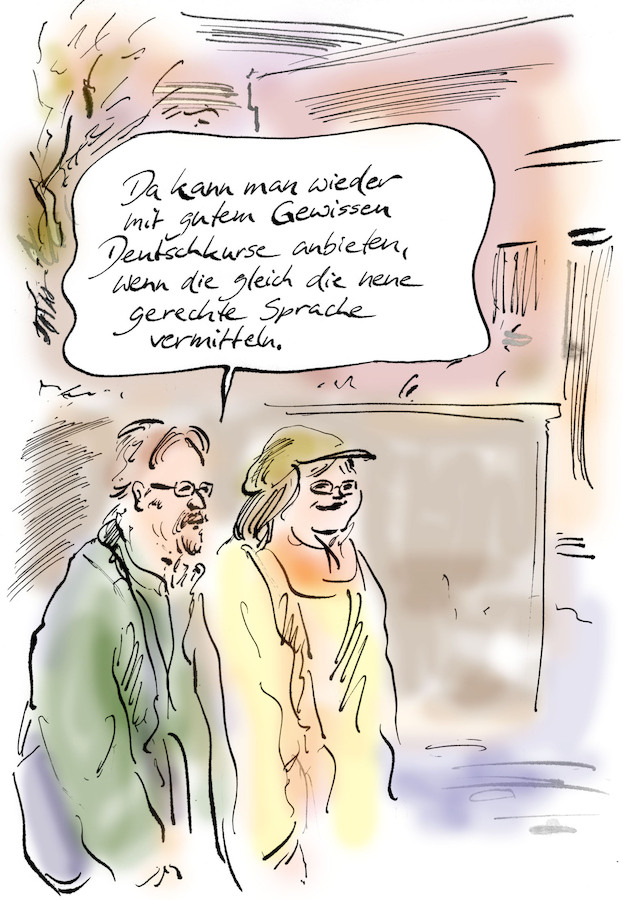 Da kann man wieder
mit gutem Gewissen
Deutschkurse anbieten,
wenn die gleich die neue
gerechte Sprache
vermitteln.